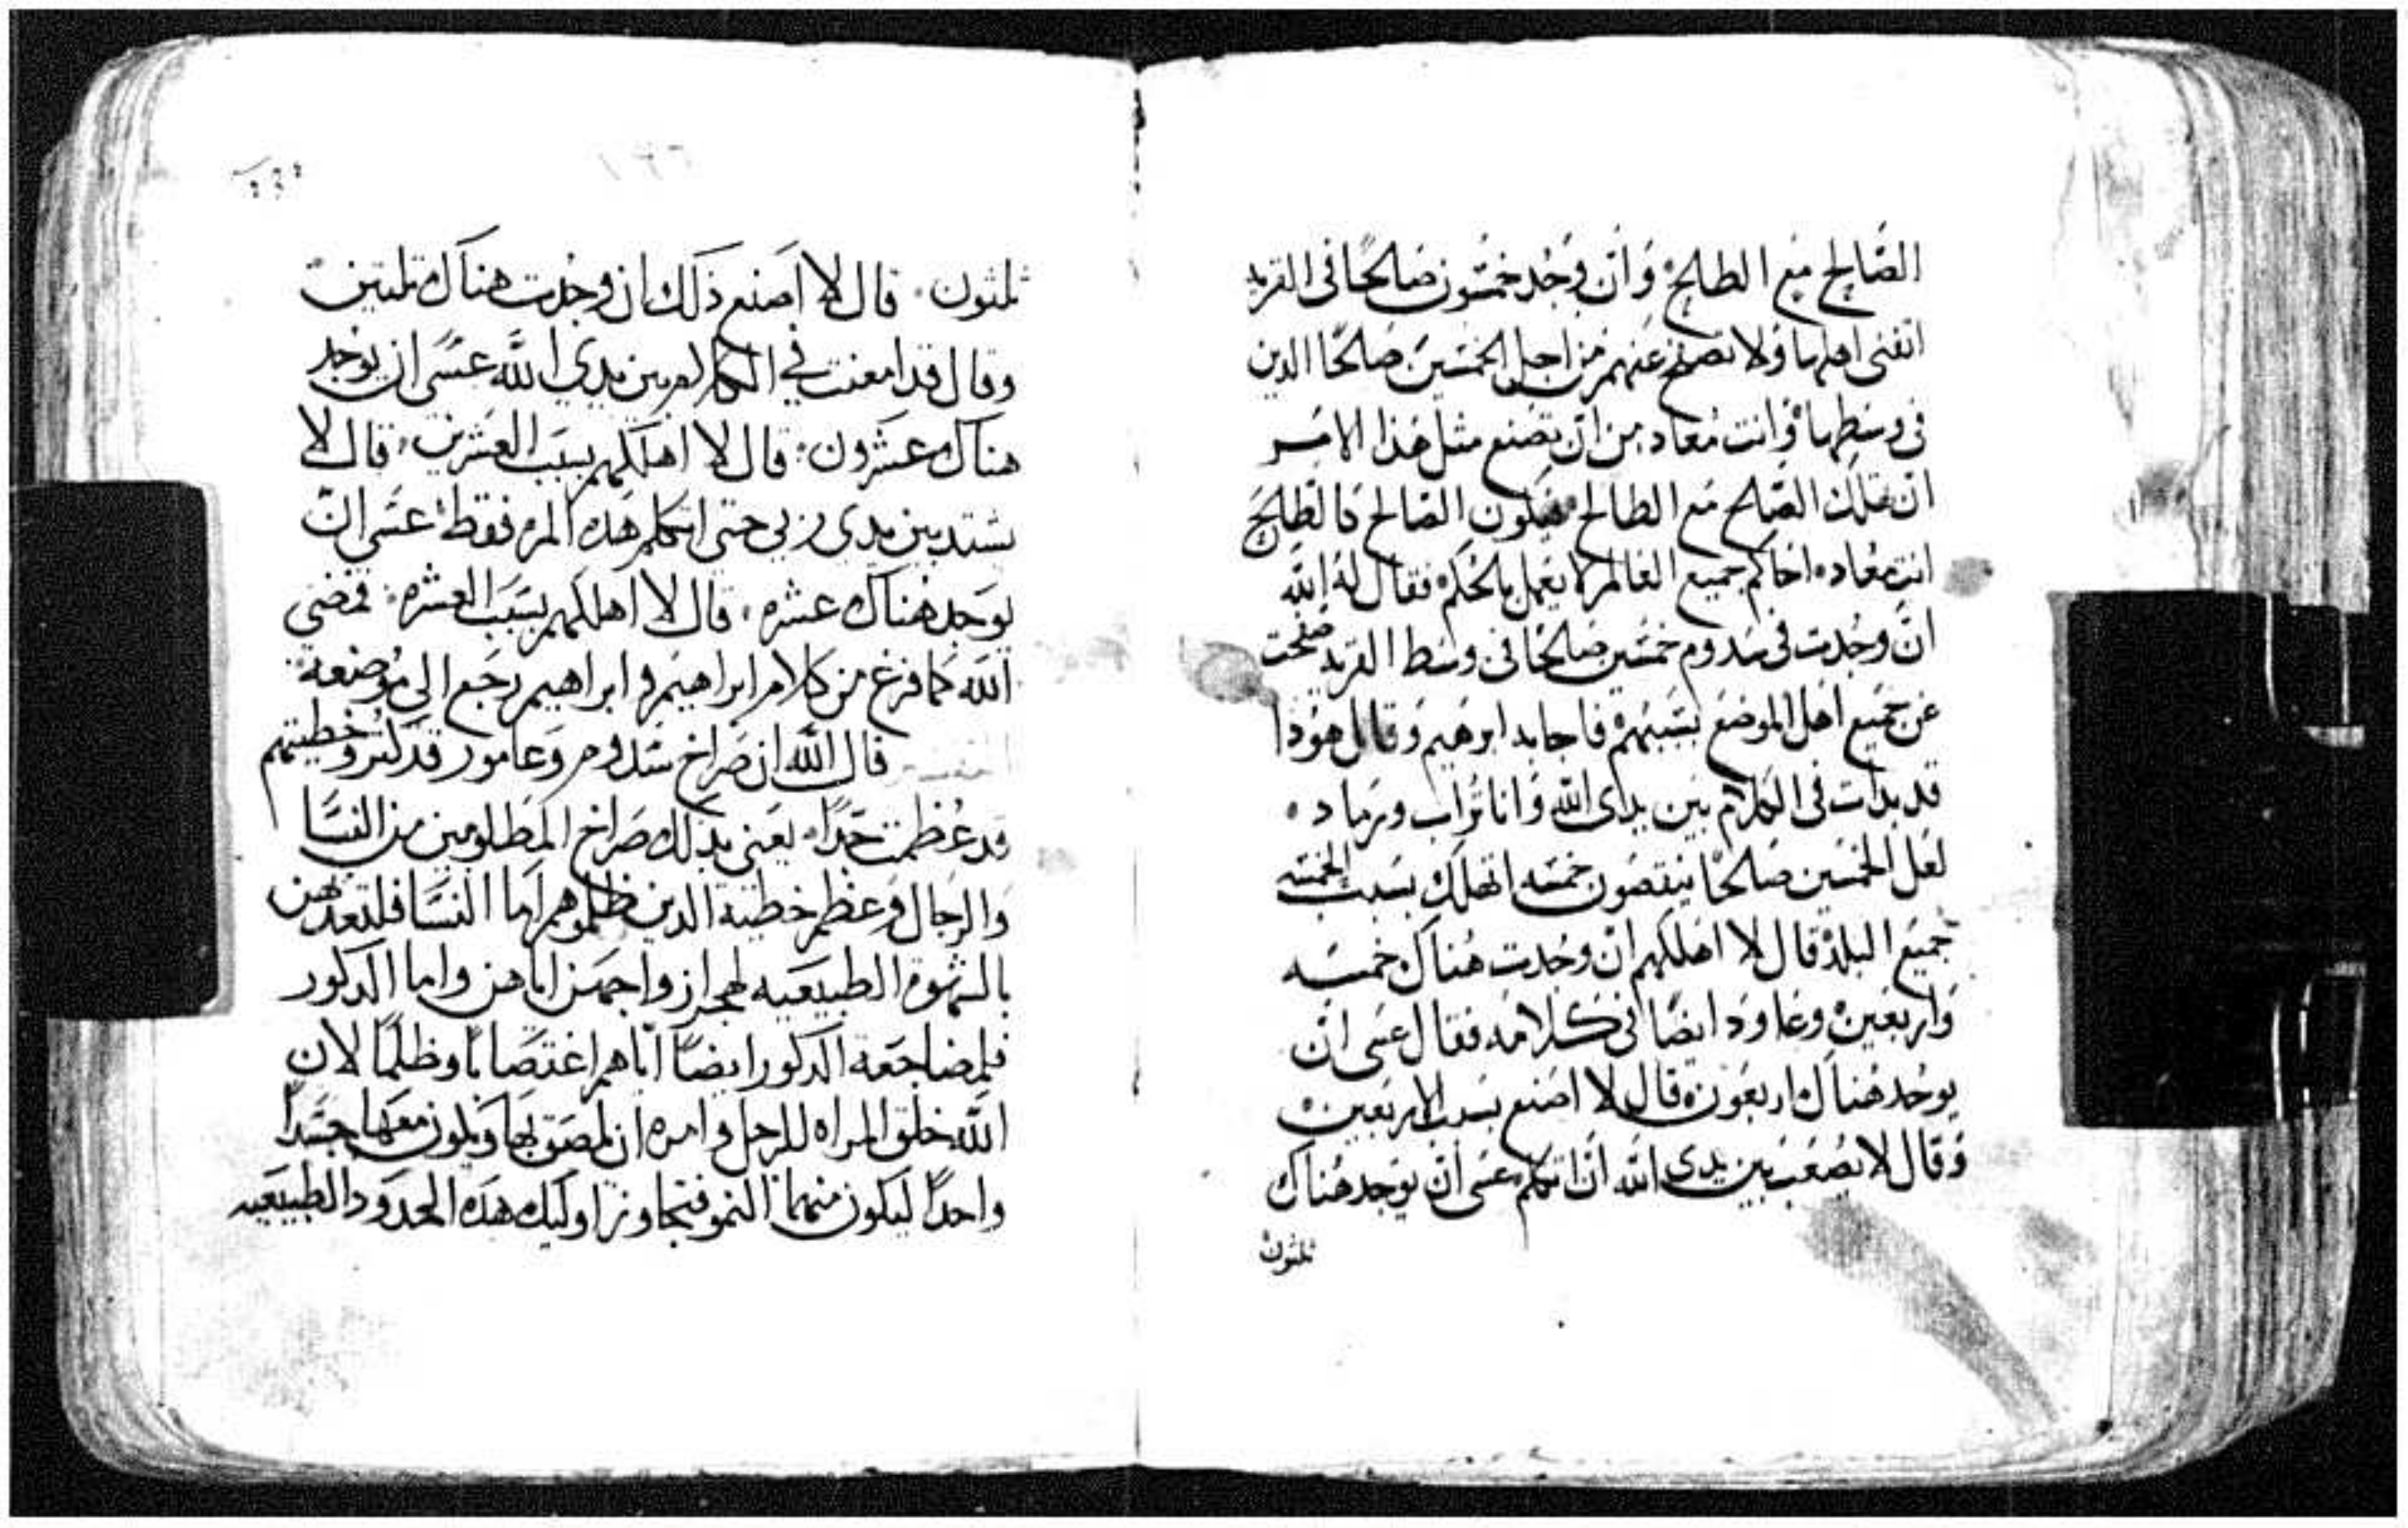 الصَّالح مَع الطالح وَان وُجُد خمسُون صَالحًا فى القريه
اتفنى اهلها وَلا تصفح عَنهم من اجل الخمَسيَن صَالحًا الدين
فى وسَطها وَانت مُعاد من ان تصَنع مثل هَذا الامَر
ان تهلك الصَّالح مَع الطالح فيَكون الصَالح كالطالح
انت مُعاد احَاكم جميع العَالم لا يعَمل بالحُكم فقَال لهُ الله
انْ وجُدت فى سَدوم خمسَين صَالحًا فى وسَط القريه صفَحت
عن جَميَع اهل الموضَع بسَببهمْ فاجابه ابرهيم وَقال هوُدا
قد بدات فى الكلام بَين يداى الله وَانا تُراب وَرماد
لعَل الخمسَين صَالحًا ينقصُون خمسَه اتهلك بسَبب الخمسَه
جميَع البلدْ قال لا اهَلكهم انْ وجُدت هُناك خمسَه
وَاربعَين وعَاودَ ايضًا فى كلامَه فقال عسَى انْ
يوجُد هُناك اربعَون قال لا اصَنع بسَبب الاربعَين
وَقال لا يصُعَب بَين يدى الله انْ اتكلم عسَى انْ يوَجد هُناك
ثلثون
ثلثون قال لا اصنع ذلك ان وجُدت هناك ثلثين
وقال قد امعنت في الكلام بين يدي الله عسَى ان يوجد
هناك عشرون قال لا اهلكهم بسبَب العشرين قال لا
يشتد بين يدى ربي حتى اتكلم هَذه المره فقط عسَى ان
يوَجد هناك عشره قال لا اهلكهم بسبَب العشره فمضى
الله لما فرغ من كلام ابراهيم وابراهيم رجَع الى موُضعه
التفسير قال الله ان صَراخ سَدوم وَعامور قد كثر وخطيتهم
قد عُظمت جَداً يعَنى بذلك صَراخ المظلومين من النسَا
وَالرجال وعَظم خطية الدين ظلموهم اما النسَا فلتعديهن
بالشهوة الطبيعَيه لهجران ازواجهَن اياهن واما الدكور
فلمضاجعَة الدكور ايضًا اياهم اغتصَابًا وظلمًا لان
الله خلق المراه للرجل وامره ان يلصَق بها ويكون معَها جسَدًا
واحدًا ليكون منهما النمو فتجاوز اوليك هذه الحدَود الطبيعَيه